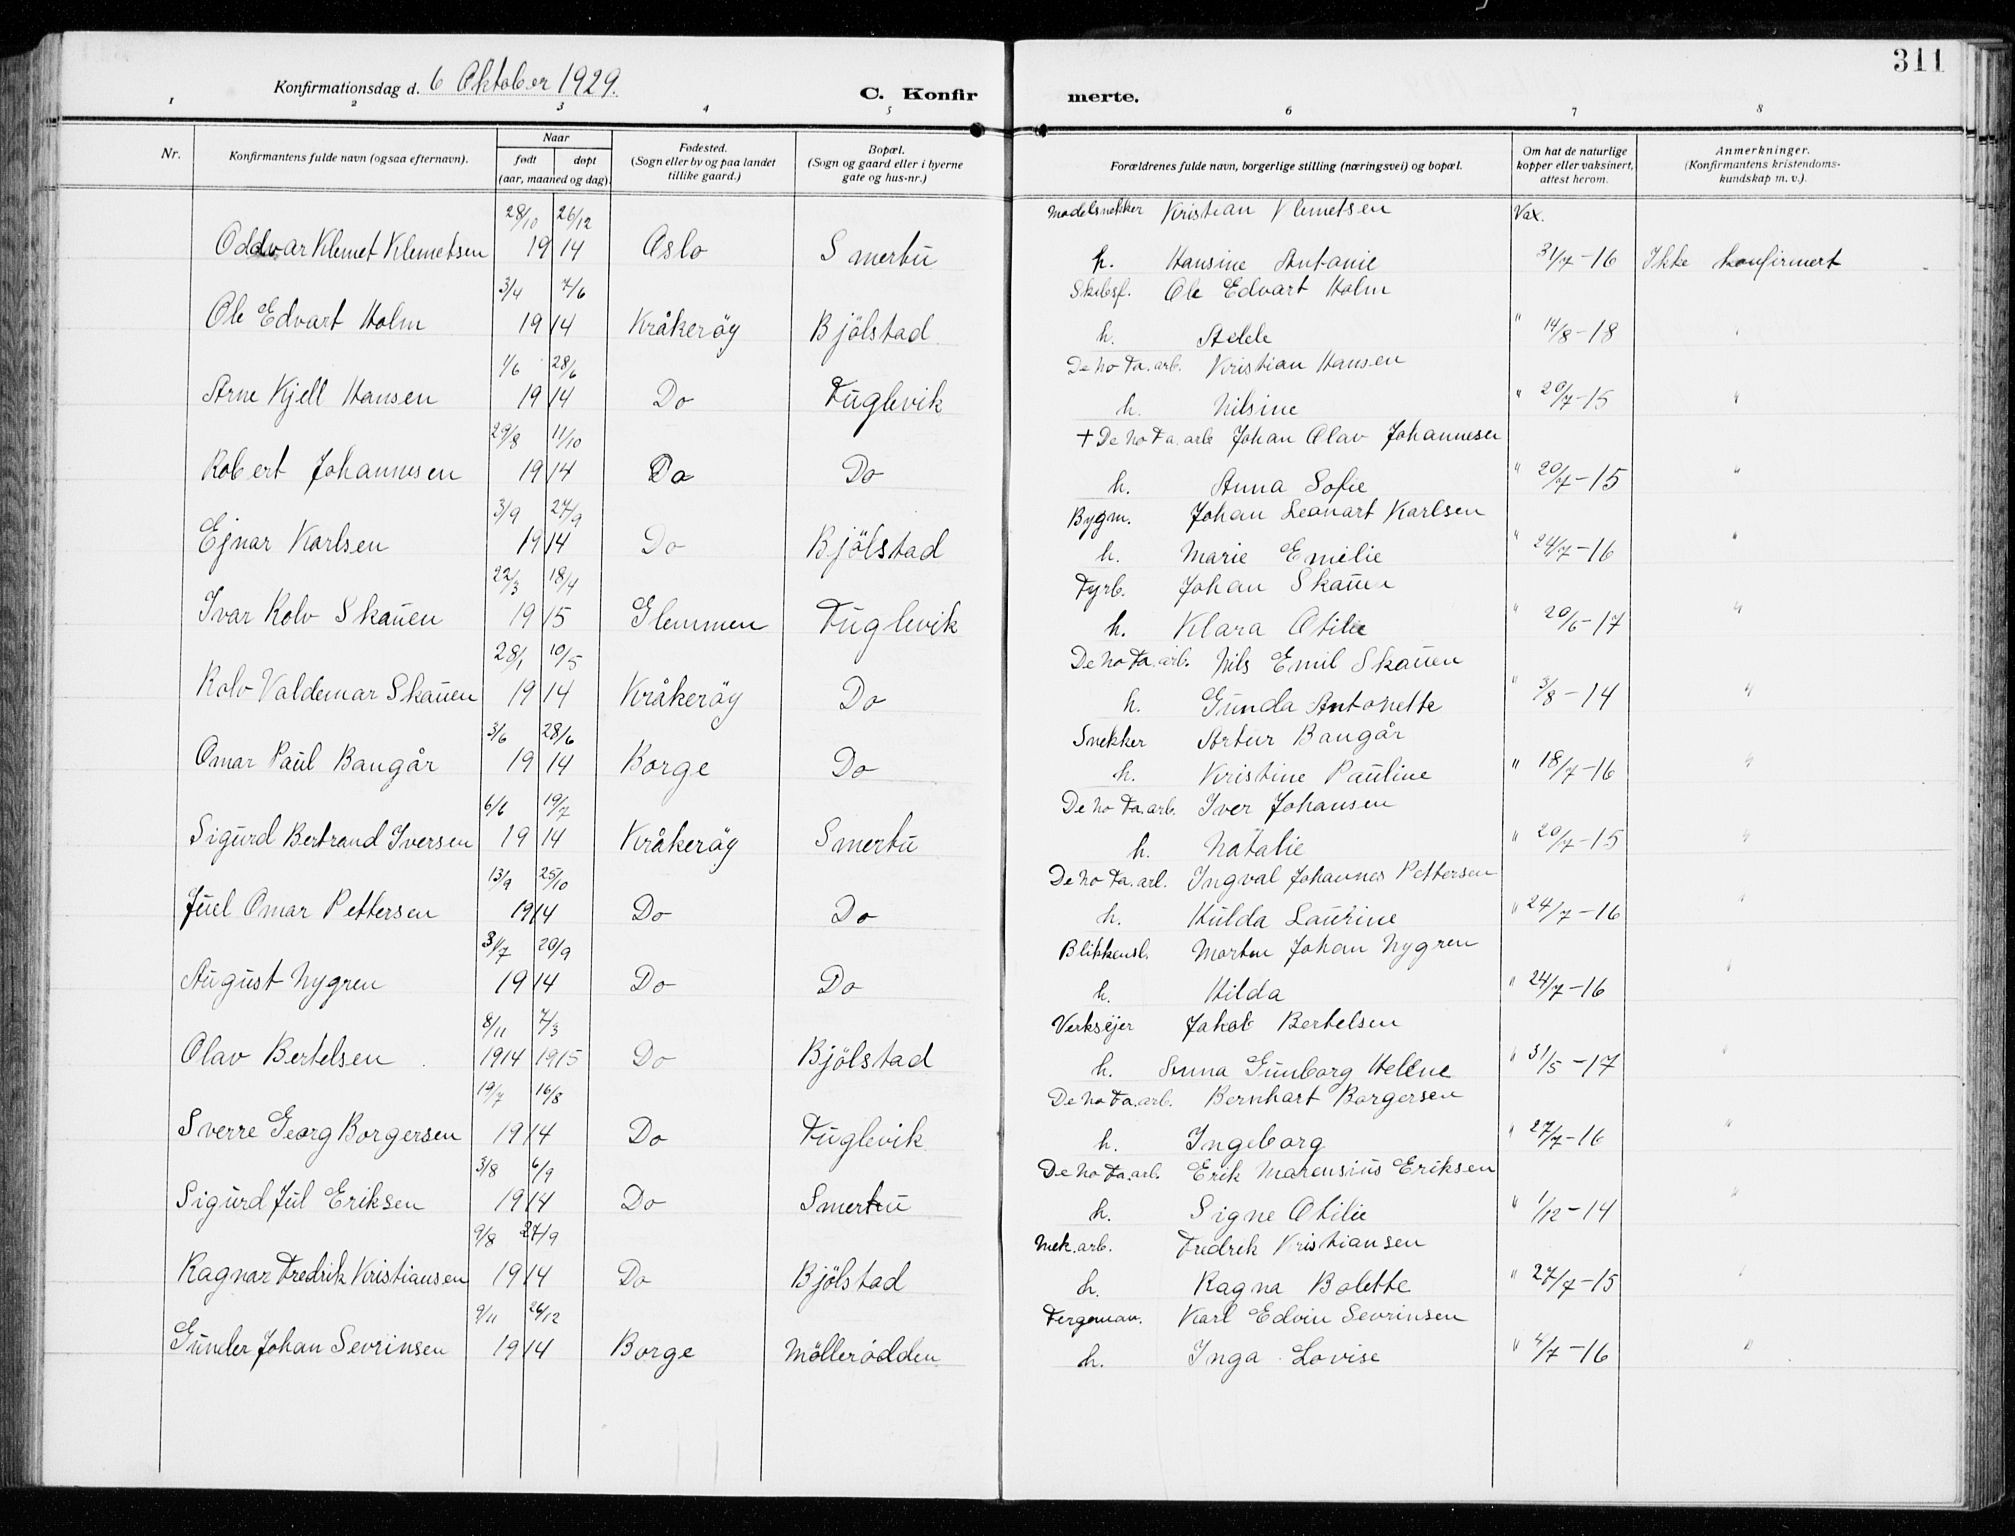 311
Konfirmationsdag d. 6 Oktober 1929.
C. Konfirmerte.
1 2 3 4 5 6 7 8
Nr.
Konfirmantens fulde navn (ogsaa efternavn).
Naar
født døpt
(aar, maaned og dag).
Fødested.
(Sogn eller by og paa landet tillike gaard.)
Bopæl.
(Sogn og gaard eller i byerne gate og hus-nr.)
Forældrenes fulde navn, borgerlige stilling (næringsvei) og bopæl.
Om hat de naturlige kopper eller vaksinert, attest herom.
Anmerkninger.
(Konfirmantens kristendomskundskap m. v.).
28/10 26/12 Modelsnekker Kristian Klemetsen Vax.
Oddvar Klemet Klemetsen 1914 Oslo Smertu h. Hansine Antonie 31/7-16 Ikke konfirmert
3/4 7/6 Skibsf. Ole Edvart Holm
Ole Edvart Holm 1914 Kråkeröy Bjölstad h. Adele " 14/8-18
1/6 28/6 De No Fa. arb. Kristian Hansen
Arne Kjell Hansen 1914 Do Fuglevik h. Nilsine " 20/7-15 "
29/8 11/10 + De No Fa. arb Johan Olav Johannesen
Robert Johannesen 1914 Do Do h. Anna Sofie " 20/7-15 "
3/9 27/9 Bygm. Johan Leonart Karlsen
Ejnar Karlsen 1914 Do Bjölstad h. Marie Emilie " 24/7-16 "
22/3 18/4 Fyrb. Johan Skauen
Ivar Rolv Skauen 1915 Glemmen Fuglevik h. Klara Otilie " 20/6-17 "
28/1 10/5 De No Fa. arb. Nils Emil Skauen
Rolv Valdemar Skauen 1914 Kråkeröy Do h. Gunda Antonette " 3/8-14 "
3/6 28/6 Snekker Artur Bangår
Omar Paul Bangår 1914 Borge Do h. Kristine Pauline " 18/7-16 "
6/6 19/7 De No Fa. arb. Iver Johansen
Sigurd Bertrand Iversen 1914 Kråkeröy Smertu h. Natalie " 20/7-15 "
13/9 25/10 De No Fa. arb. Ingval Johannes Pettersen
Juel Omar Pettersen 1914 Do Do h. Hulda Laurine " 24/7-16 "
31/7 20/9 Blikkensl. Morten Johan Nygren
August Nygren 1914 Do Do h. Hilda " 24/7-16 "
8/11 7/3 Verksejer Jakob Bertelsen
Olav Bertelsen 1914 1915 Do Bjölstad h. Anna Gunborg Helene " 31/5-17 "
19/7 16/8 De No Fa. arb. Bernhart Borgersen
Sverre Georg Borgersen 1914 Do Fuglevik h. Ingeborg " 27/7-16 "
3/8 6/9 De No Fa. arb. Erik Marensius Eriksen
Sigurd Jul Eriksen 1914 Do Smertu h. Signe Otilie " 1/12-14 "
9/8 27/9 Mek. arb. Fredrik Kristiansen
Ragnar Fredrik Kristiansen 1914 Do Bjölstad h. Ragna Bolette " 27/7-15 "
9/11 26/12 Fergeman. Karl Edvin Sevrinsen
Gunder Johan Sevrinsen 1914 Borge Möllerodden h. Inga Lovise " 4/7-16 "